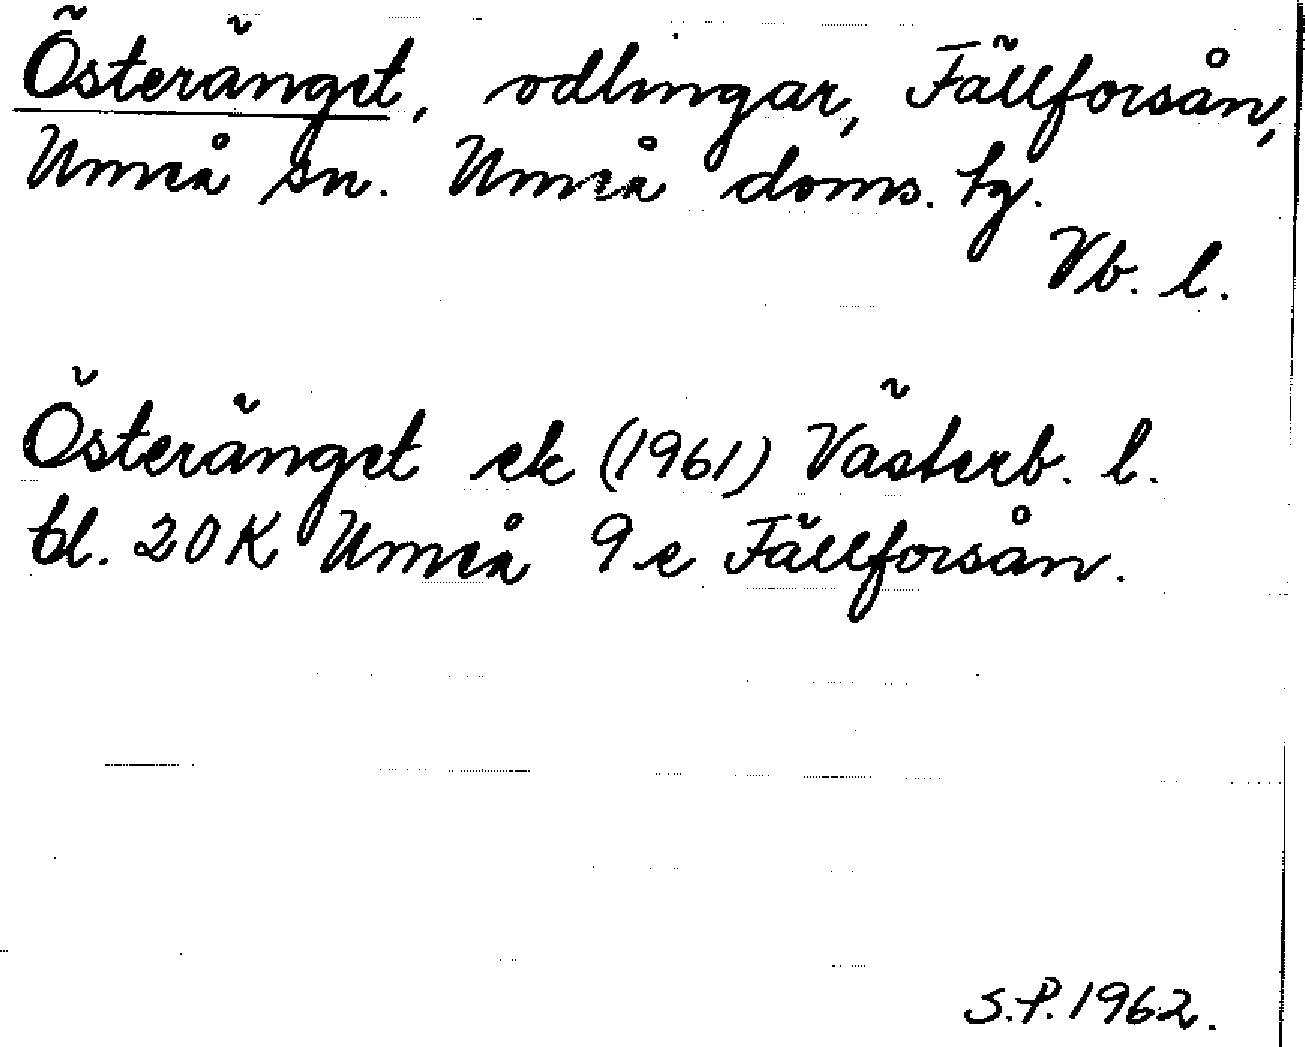 Österänget, odlingar, Fällforsån,
Umeå sn. Umeå doms. tg.
Vb. l.
Österänget ek (1961) Västerb. l.
bl. 20 K Umeå 9 e Fällforsån.
S.P. 1962.